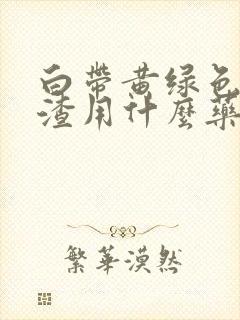 白带黄绿色
渣用什麼藥
繁華漠然